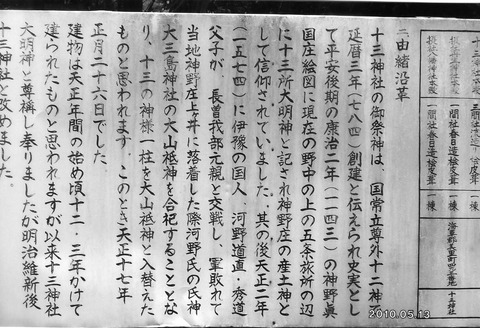 十三神社
一間社春日造檜皮葺
一間社春日造檜皮葺
一棟
一棟
十三神社
二、由緒沿革
十三神社の御祭神は、国常立尊外十二神で
延暦三年(七八四)創建と伝えられ史実とし
て平安後期の康治二年(一一四三)の神野眞
国庄絵図に現在の野中の上の五条旅所の辺
に十三所大明神と記され神野庄の産土神と
して信仰されていました。其の後天正二年
(一五七四)に伊豫の国人、河野道直・秀道
父子が、長曽我部元親と交戦し、軍敗れて
当地神野庄上ヶ井に落着した際河野氏の氏神
大三島神社の大山祗神を合祀することとな
り、十三の神様一柱を大山祗神と入替えた
ものと思われます。このとき天正十七年
正月二十六日でした。
建物は天正年間の始め頃十二・三年かけて
建られたものと思われますが以来十三神社
大明神と尊稱し奉りましたが明治維新後
十三神社と改めました。
2010.05.13